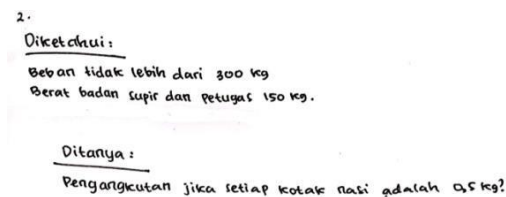 2.
Diketahui:
Beban tidak lebih dari 300 kg
Berat badan supir dan petugas 150 kg.
Ditanya:
Pengangkutan jika setiap kotak nasi adalah 0,5 kg?